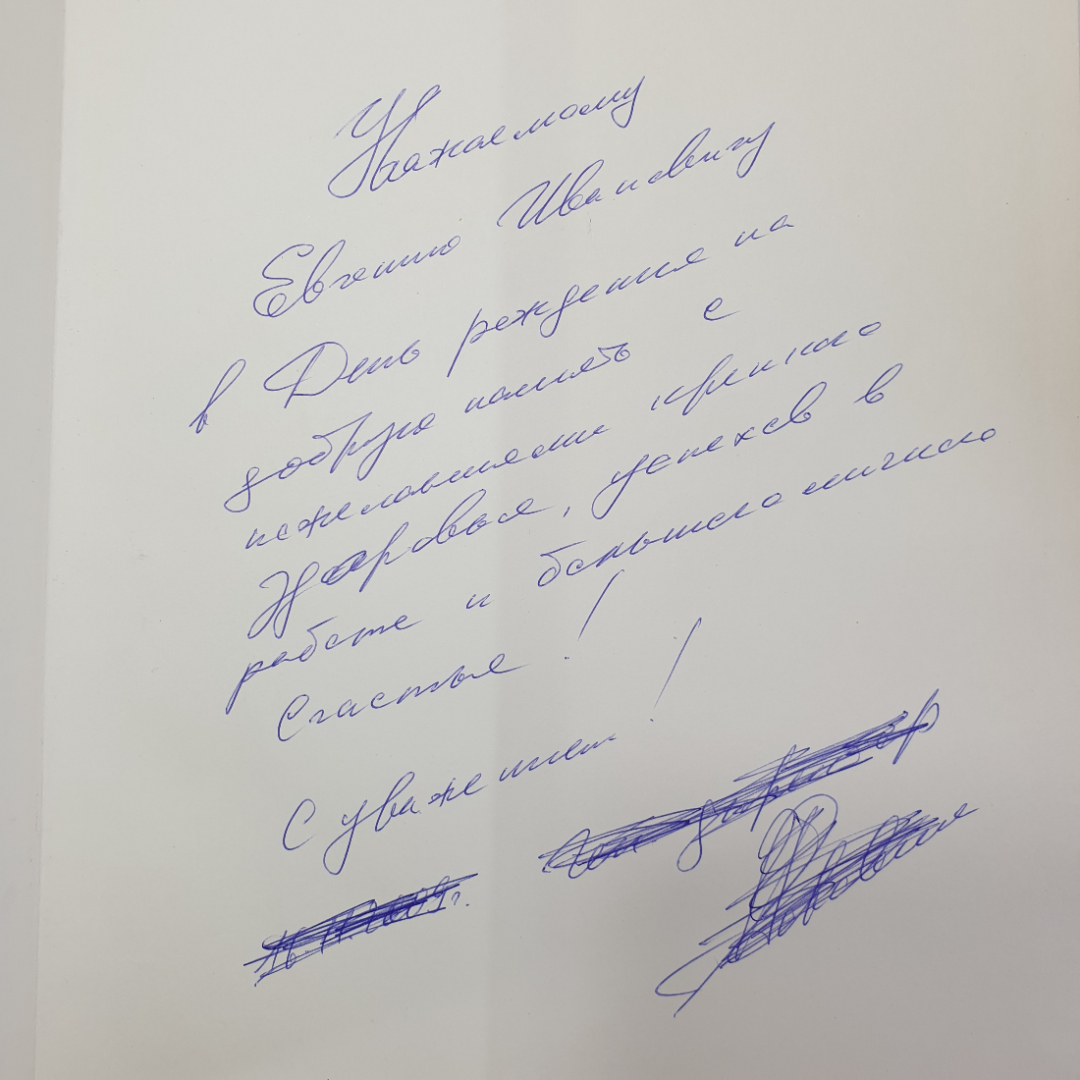 Уважаемому
Евгению Ивановичу
в День рождения на
добрую память с
пожеланиями крепкого
Здоровья, успехов в
работе и большого личного
Счастья!
С уважением!